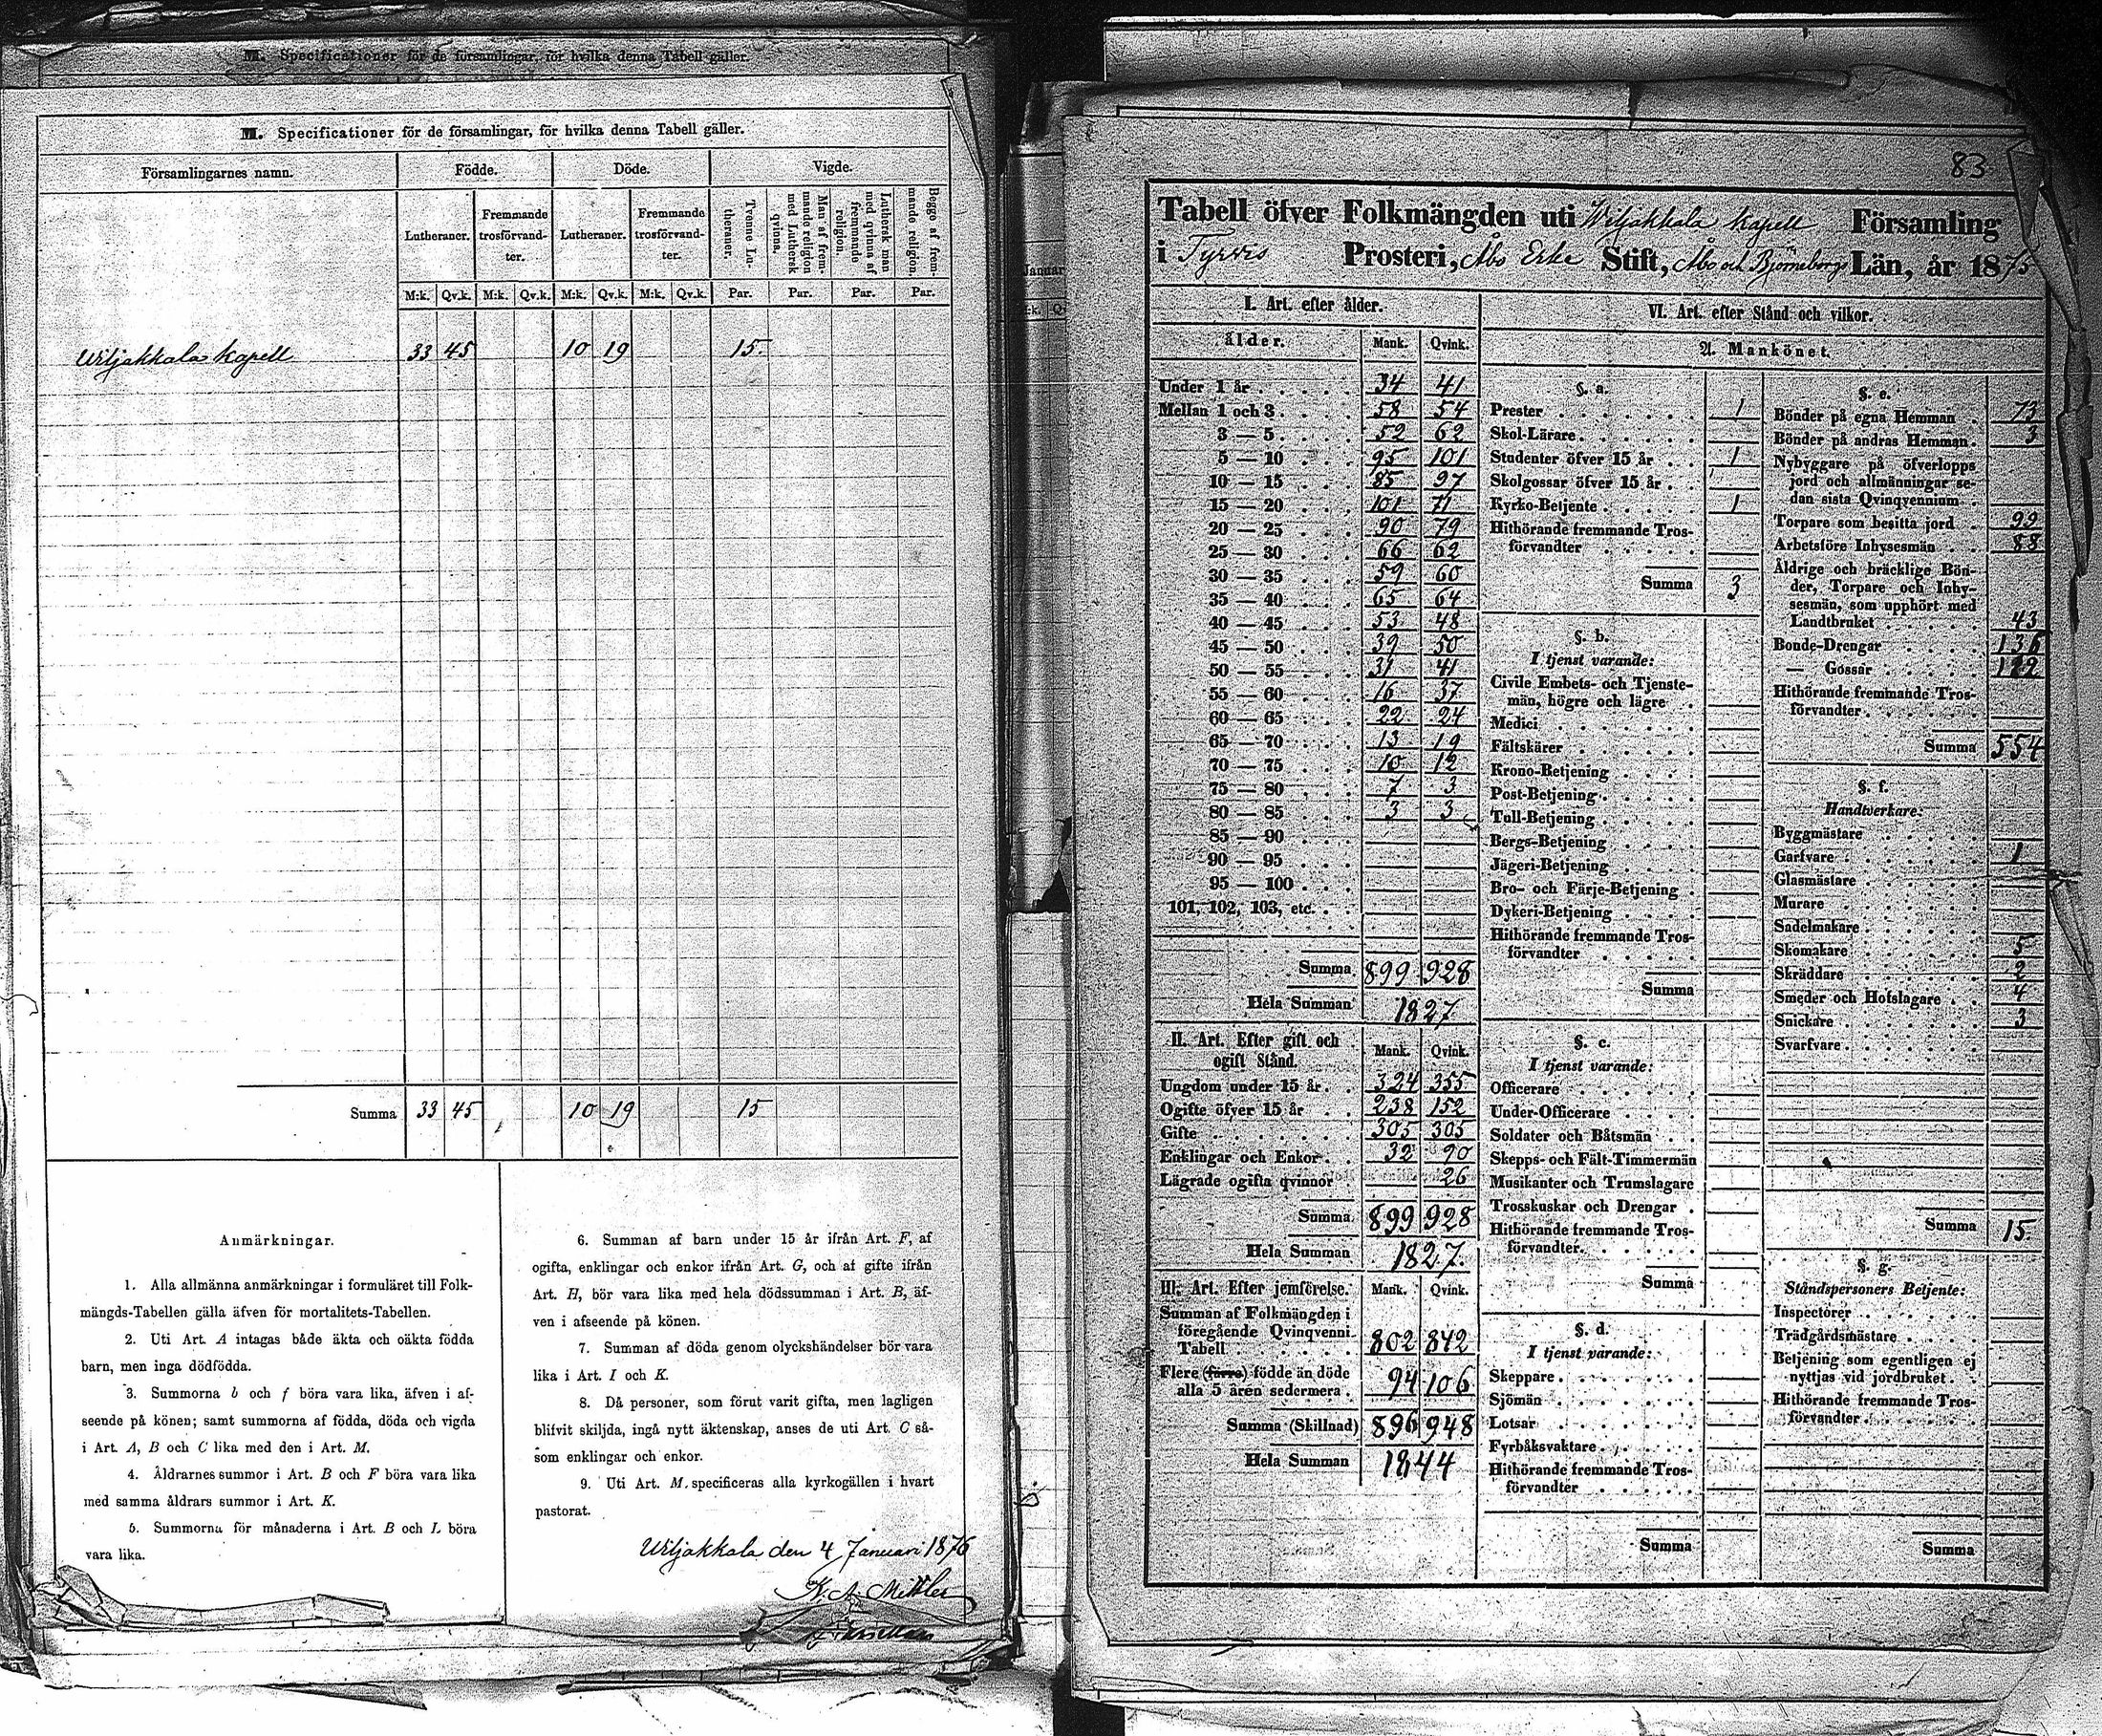 M. Specificationer för de församlingar, för hvilka denna Tabell gäller.
M. Specificationer för de församlingar, för hvilka denna Tabell gäller.
Församlingarnes namn. Födde. Döde. Vigde.
Lutheraner. Fremmande trosförvandter. Lutheraner. Fremmande trosförvandter. Tvenne Lutheraner. Man af fremmande religion med Luthersk qvinna. Luthersk man med qvinna af fremmande religion. Begge af fremmande religion.
M:k. Qv.k. M:k. Qv.k. M:k. Qv.k. M:k. Qv.k. Par. Par. Par. Par.
Wiljakkala Kapell 33 45 10 19 15.
Summa 33 45 10 19 15
Anmärkningar.
1. Alla allmänna anmärkningar i formuläret till Folk-
mängds-Tabellen gälla äfven för mortalitets-Tabellen.
2. Uti Art. A intagas både äkta och oäkta födda
barn, men inga dödfödda.
3. Summorna b och f böra vara lika, äfven i af-
seende på könen; samt summorna af födda, döda och vigda
i Art. A, B och C lika med den i Art. M.
4. Åldrarnes summor i Art. B och F böra vara lika
med samma åldrars summor i Art. K.
5. Summorna för månaderna i Art. B och L böra
vara lika.
6. Summan af barn under 15 år ifrån Art. F, af
ogifta, enklingar och enkor ifrån Art. G, och af gifte ifrån
Art. H, bör vara lika med hela dödssumman i Art. B, äf-
ven i afseende på könen.
7. Summan af döda genom olyckshändelser bör vara
lika i Art. I och K.
8. Då personer, som förut varit gifta, men lagligen
blifvit skiljda, ingå nytt äktenskap, anses de uti Art. C så-
som enklingar och enkor.
9. Uti Art. M. specificeras alla kyrkogällen i hvart
pastorat.
Wiljakkala den 4 Januari 1876
K. A. Mittler
83
Tabell öfver Folkmängden uti Wiljakkala Kapell Församling
i Tyrvis Prosteri, Åbo Erke Stift, Åbo och Björneborgs Län, år 1875
I. Art. efter ålder.
ålder. Mank. Qvink.
Under 1 år 34 41
Mellan 1 och 3 58 54
3 — 5 52 62
5 — 10 95 101
10 — 15 85 97
15 — 20 101 71
20 — 25 90 79
25 — 30 66 62
30 — 35 59 60
35 — 40 65 64
40 — 45 53 48
45 — 50 39 50
50 — 55 31 41
55 — 60 16 37
60 — 65 22 24
65 — 70 13 19
70 — 75 10 12
75 — 80 7 3
80 — 85 3 3
85 — 90
90 — 95
95 — 100
101, 102, 103, etc.
Summa 899 928
Hela Summan 1827
II. Art. Efter gift och
ogift Stånd. Mank. Qvink.
Ungdom under 15 år 324 355
Ogifte öfver 15 år 238 152
Gifte 305 305
Enklingar och Enkor 32 90
Lägrade ogifta qvinnor 26
Summa 899 928
Hela Summan 1827.
III. Art. Efter jemförelse. Mank. Qvink.
Summan af Folkmängden i
föregående Qvinqvenni-
Tabell 802 842
Flere (färre) födde än döde
alla 5 åren sedermera 94 106
Summa (Skillnad) 896 948
Hela Summan 1844
VI. Art. efter Stånd och vilkor.
A. Mankönet.
§. a.
Prester 1
Skol-Lärare
Studenter öfver 15 år 1
Skolgossar öfver 15 år
Kyrko-Betjente 1
Hithörande fremmande Tros-
förvandter
Summa 3
§. b.
I tjenst varande:
Civile Embets- och Tjenste-
män, högre och lägre
Medici
Fältskärer
Krono-Betjening
Post-Betjening
Tull-Betjening
Bergs-Betjening
Jägeri-Betjening
Bro- och Färje-Betjening
Dykeri-Betjening
Hithörande fremmande Tros-
förvandter
Summa
§. c.
I tjenst varande:
Officerare
Under-Officerare
Soldater och Båtsmän
Skepps- och Fält-Timmermän
Musikanter och Trumslagare
Trosskuskar och Drengar
Hithörande fremmande Tros-
förvandter.
Summa
§. d.
I tjenst varande:
Skeppare
Sjömän
Lotsar
Fyrbåksvaktare
Hithörande fremmande Tros-
förvandter
Summa
§. e.
Bönder på egna Hemman 73
Bönder på andras Hemman 3
Nybyggare på öfverlopps
jord och allmänningar se-
dan sista Qvinqvennium
Torpare som besitta jord 99
Arbetsföre Inhysesmän 88
Åldrige och bräcklige Bön-
der, Torpare och Inhy-
sesmän, som upphört med
Landtbruket 43
Bonde-Drengar 136
— Gossar
Hithörande fremmande Tros-
förvandter
Summa 554
§. f.
Handtverkare:
Byggmästare
Garfvare 1
Glasmästare
Murare
Sadelmakare
Skomakare 5
Skräddare 2
Smeder och Hofslagare 4
Snickare 3
Svarfvare
Summa 15.
§. g.
Ståndspersoners Betjente:
Inspectorer
Trädgårdsmästare
Betjening som egentligen ej
nyttjas vid jordbruket
Hithörande fremmande Tros-
förvandter
Summa